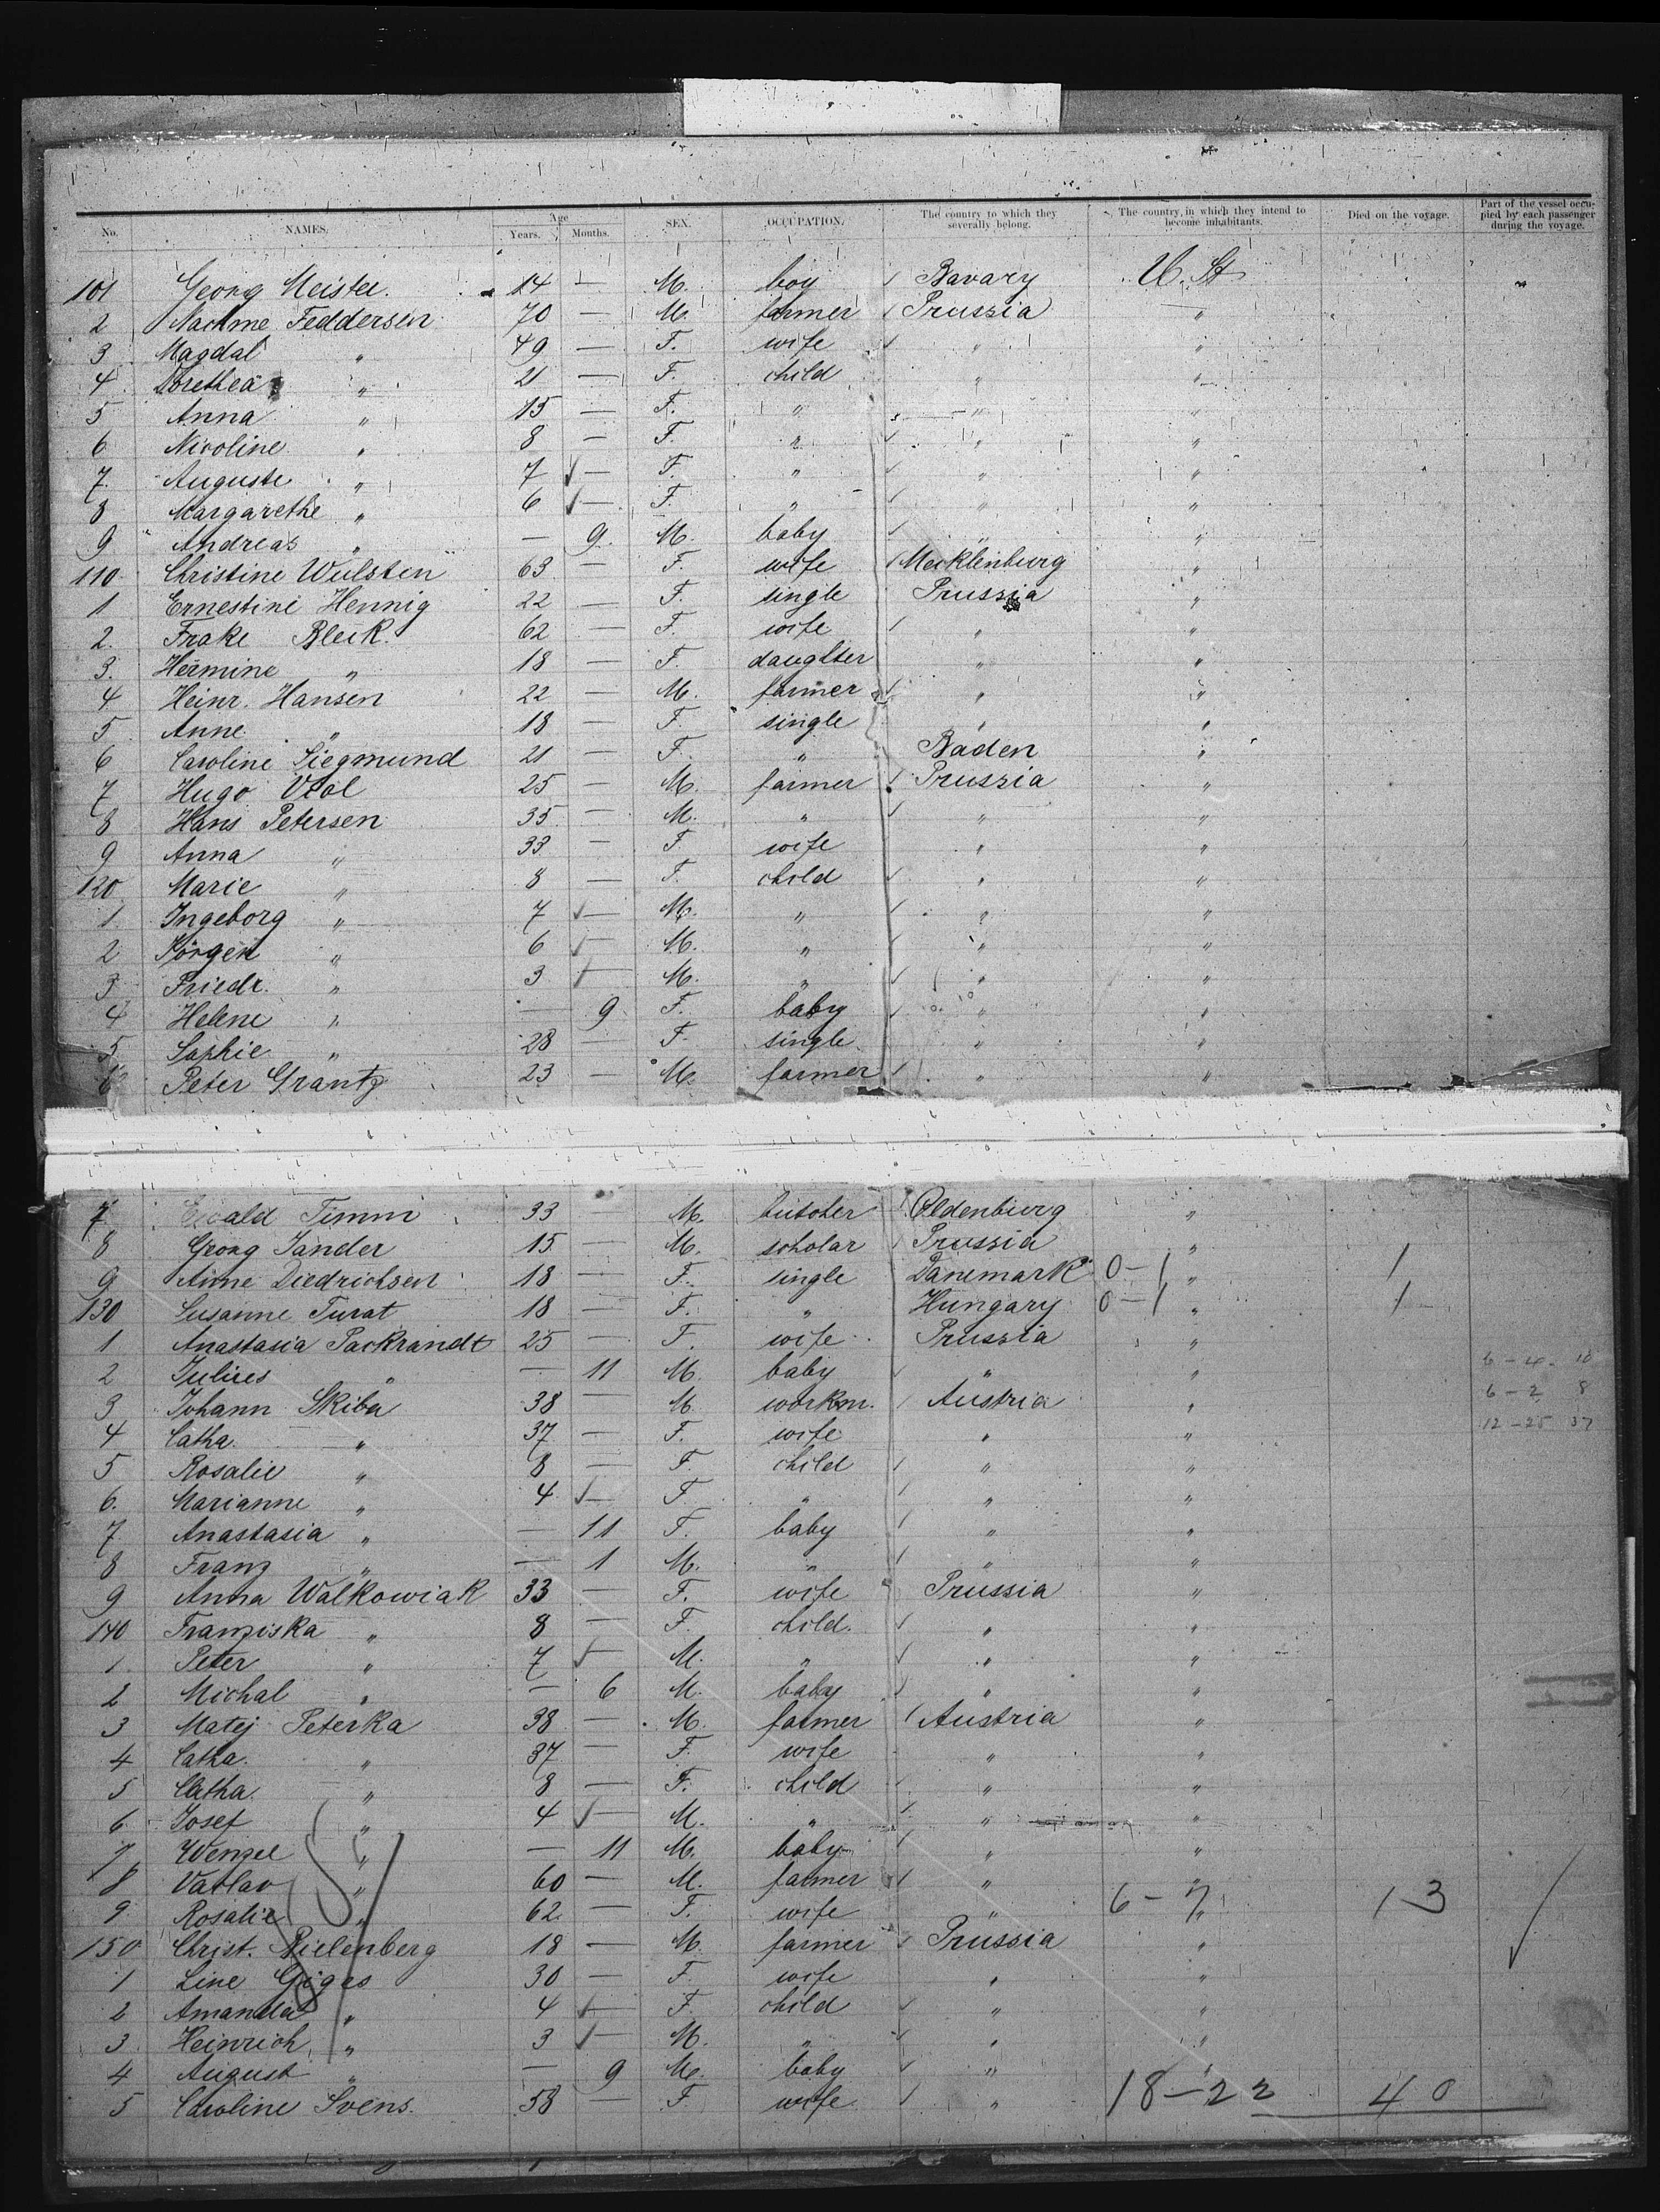 No. NAMES. Age Years. Months. SEX. OCCUPATION. The country to which they severally belong. The country, in which they intend to become inhabitants. Died on the voyage. Part of the vessel occupied by each passenger during the voyage.
101 Georg Meister. 14 — M. boy Bavary U. St
2 Feddersen 70 — M. farmer Prussia "
3 Magdal " 49 — F. wife " "
4 Dorethea " 21 — F. child " "
5 Anna " 15 — F. " " "
6 Nicoline " 8 — F. " " "
7. Auguste " 7 — F. " " "
8 Margarethe " 6 — F. " " "
9 Andreas " — 9. M. baby " "
110 Christine Wulsten 63 — F. wife Mecklenburg "
1 Ernestine Hennig 22 — F. single Prussia "
2. Frake Bleik. 62 — F. wife " "
3. Hermine " 18 — F. daughter " "
4 Heinr. Hansen 22 — M. farmer " "
5 Anne " 18 — F. single " "
6 Caroline Siegmund 21 — F. " Baden "
7 Hugo 25 — M. farmer Prussia "
8 Hans Petersen 35 — M. " " "
9 Anna " 33 — F. wife " "
120 Marie " 8 — F. child " "
1. Ingeborg " 7 — M. " " "
2 Jörgen " 6 — M. " " "
3 Friedr. " 3 — M. " " "
4 Helene " — 9 F. baby " "
5 Sophie " 28 — F. single " "
6 Peter Grantz 23 — M. farmer " "
7 Ewald Timm 33 — M. butscher Oldenburg "
8 Georg Jander 15 — M. scholar Prussia "
9 Anne Diedrichsen 18 — F. single Danemark 0-1 " 1
130 Susanne Turat 18 — F. " Hungary 0-1 " 1
1 Anastasia Packrandt 25 — F. wife Prussia "
2 Julius " — 11 M. baby " " 6-4- 10
3 Johann Skiba 38 — M. workm. Austria " 6-2 8
4 Catha. " 37 — F. wife " " 12-25 37
5 Rosalie " 8 — F. child " "
6. Marianne " 4 — F. " " "
7 Anastasia " — 11 F. baby " "
8 Franz " — 1 M. " " "
9 Anna Walkowiak 33 — F. wife Prussia "
140 Franziska " 8 — F. child. " "
1. Peter " 7 — M. " " "
2 Michal " — 6 M. baby " "
3 Matej Peterka 38 — M. farmer Austria "
4 Catha. " 37 — F. wife " "
5 Catha. " 8 — F. child " "
6 Josef " 4 — M. " " "
7 Wenzel " — 11 M. baby " "
8 Vatlav " 60 — M. farmer " "
9 Rosalie " 62. — F. wife " 6-7 " 13
150 Christ. Bielenberg 18 — M. farmer Prussia "
1 Line Göges 30 — F. wife " "
2 Amanda " 4 — F. child " "
3 Heinrich " 3 — M. " " "
4 August " — 9 M. baby " "
5 Caroline Svens. 58 — F wife " 18-22 40